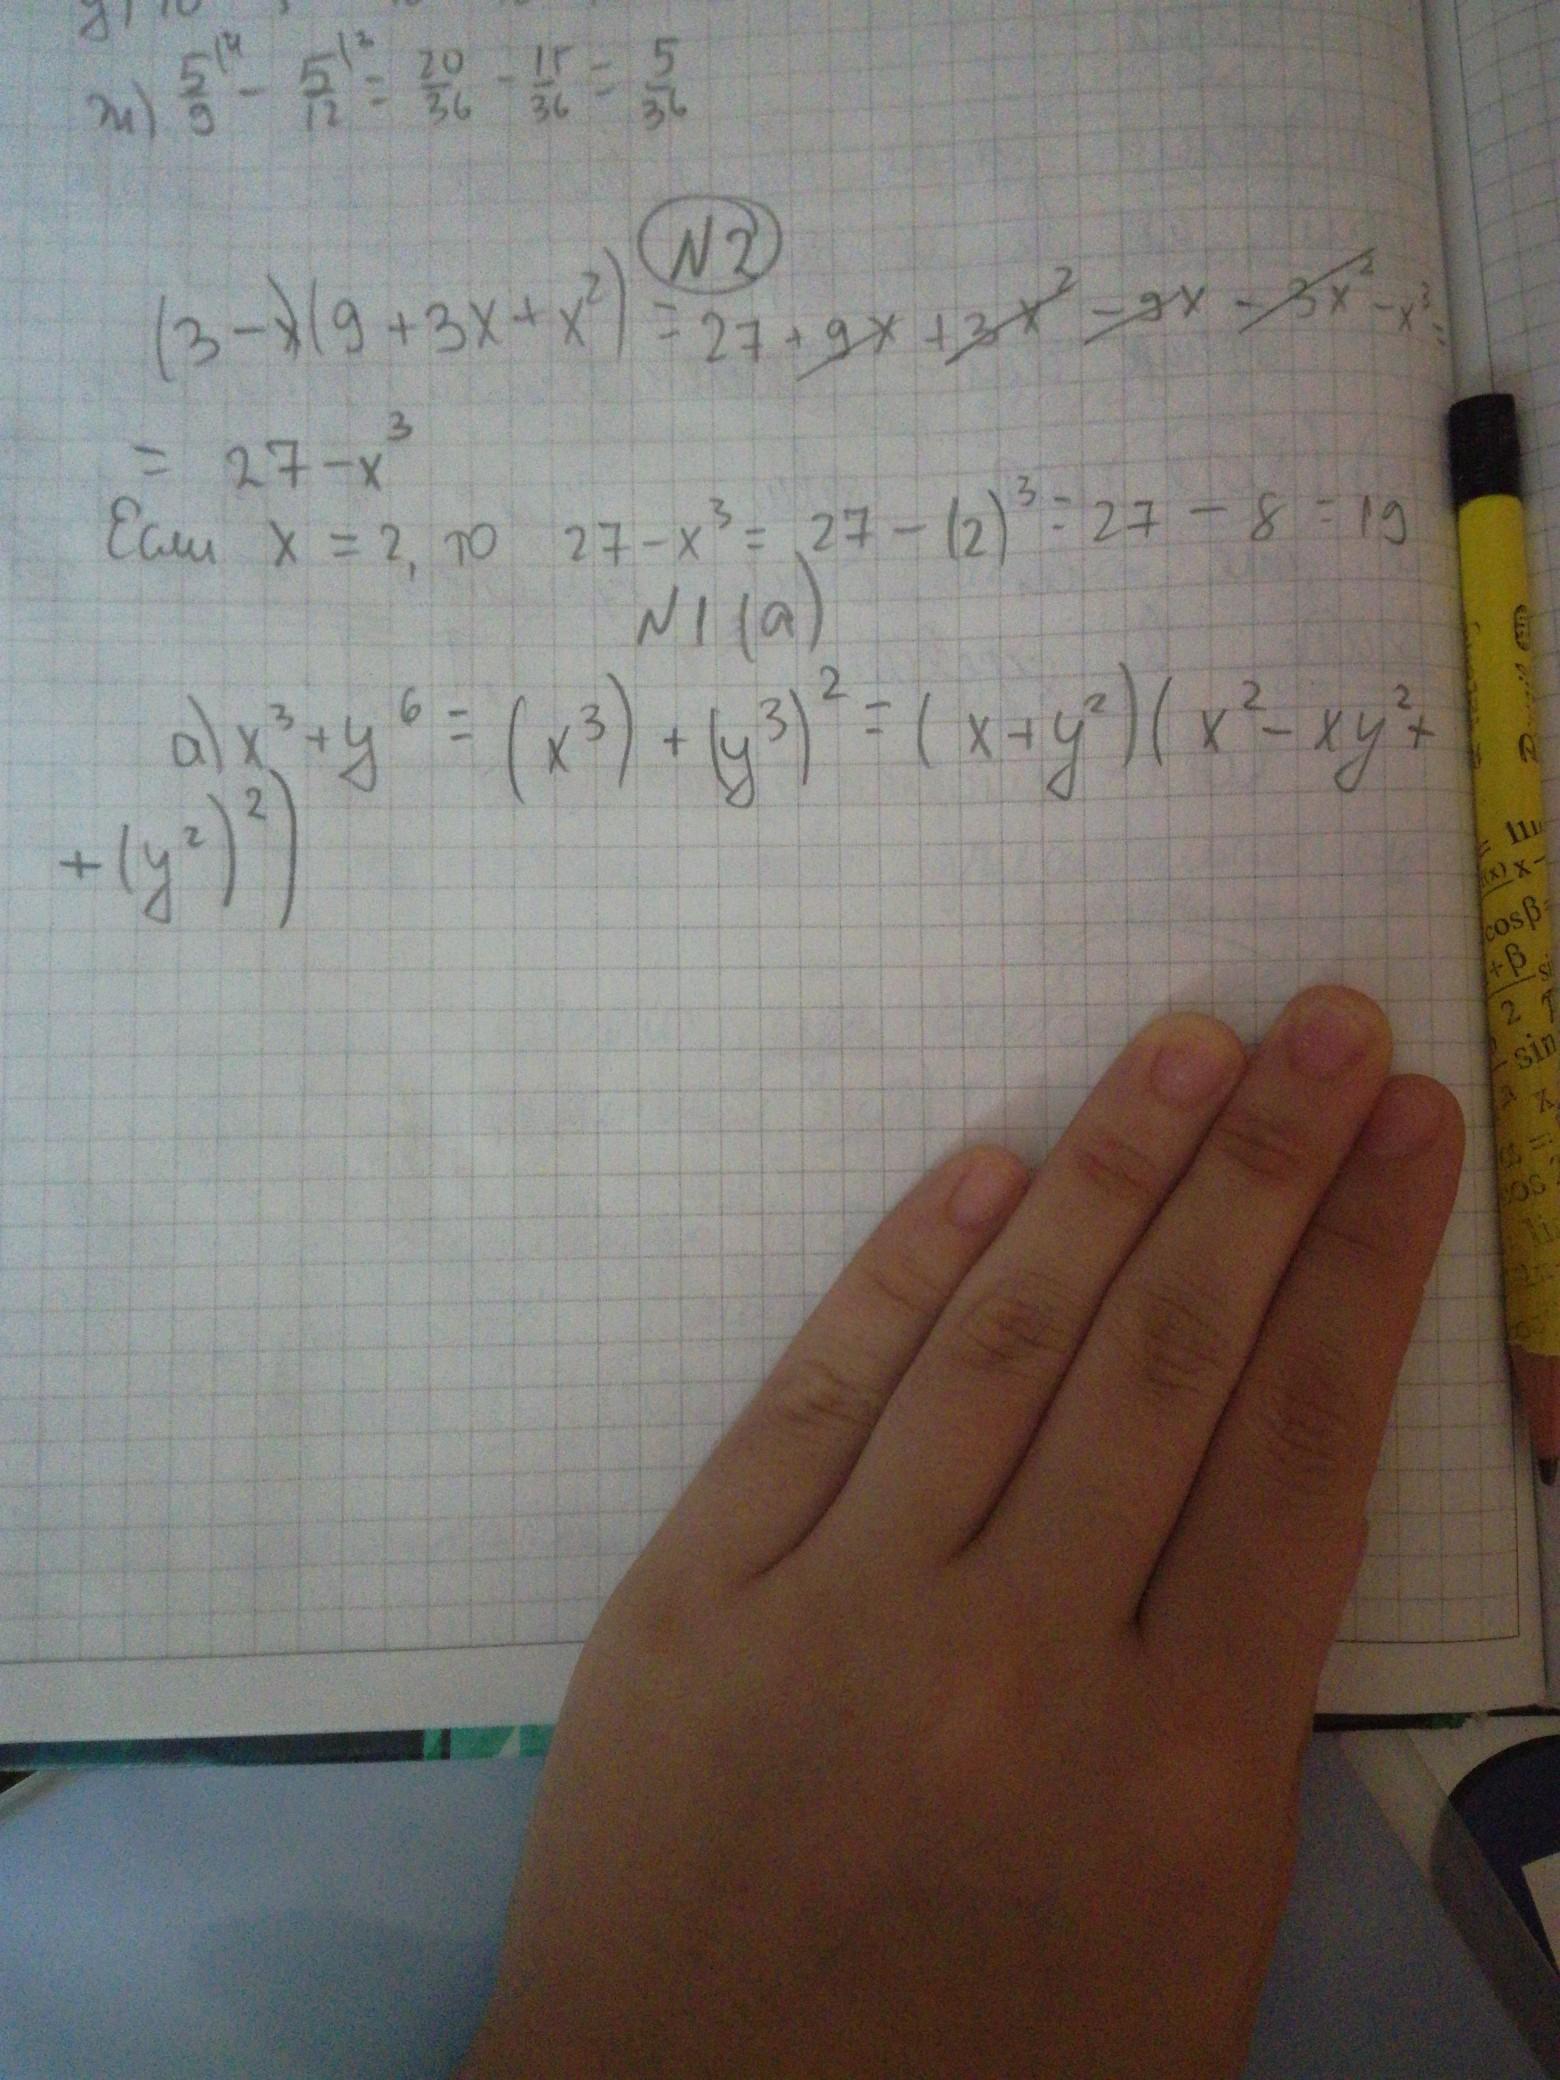 ж) 5/9 |4 - 5/12 |3 = 20/36 - 15/36 = 5/36
N2
(3-x)(9+3x+x²) = 27+9x+3x²-9x-3x²-x³=
= 27-x³
Если x = 2, то 27-x³ = 27-(2)³ = 27 - 8 = 19
N1 (a)
a) x³+y⁶ = (x³) + (y³)² = (x+y²)(x²-xy²+
+(y²)²)
cosβ
+β
2
sin